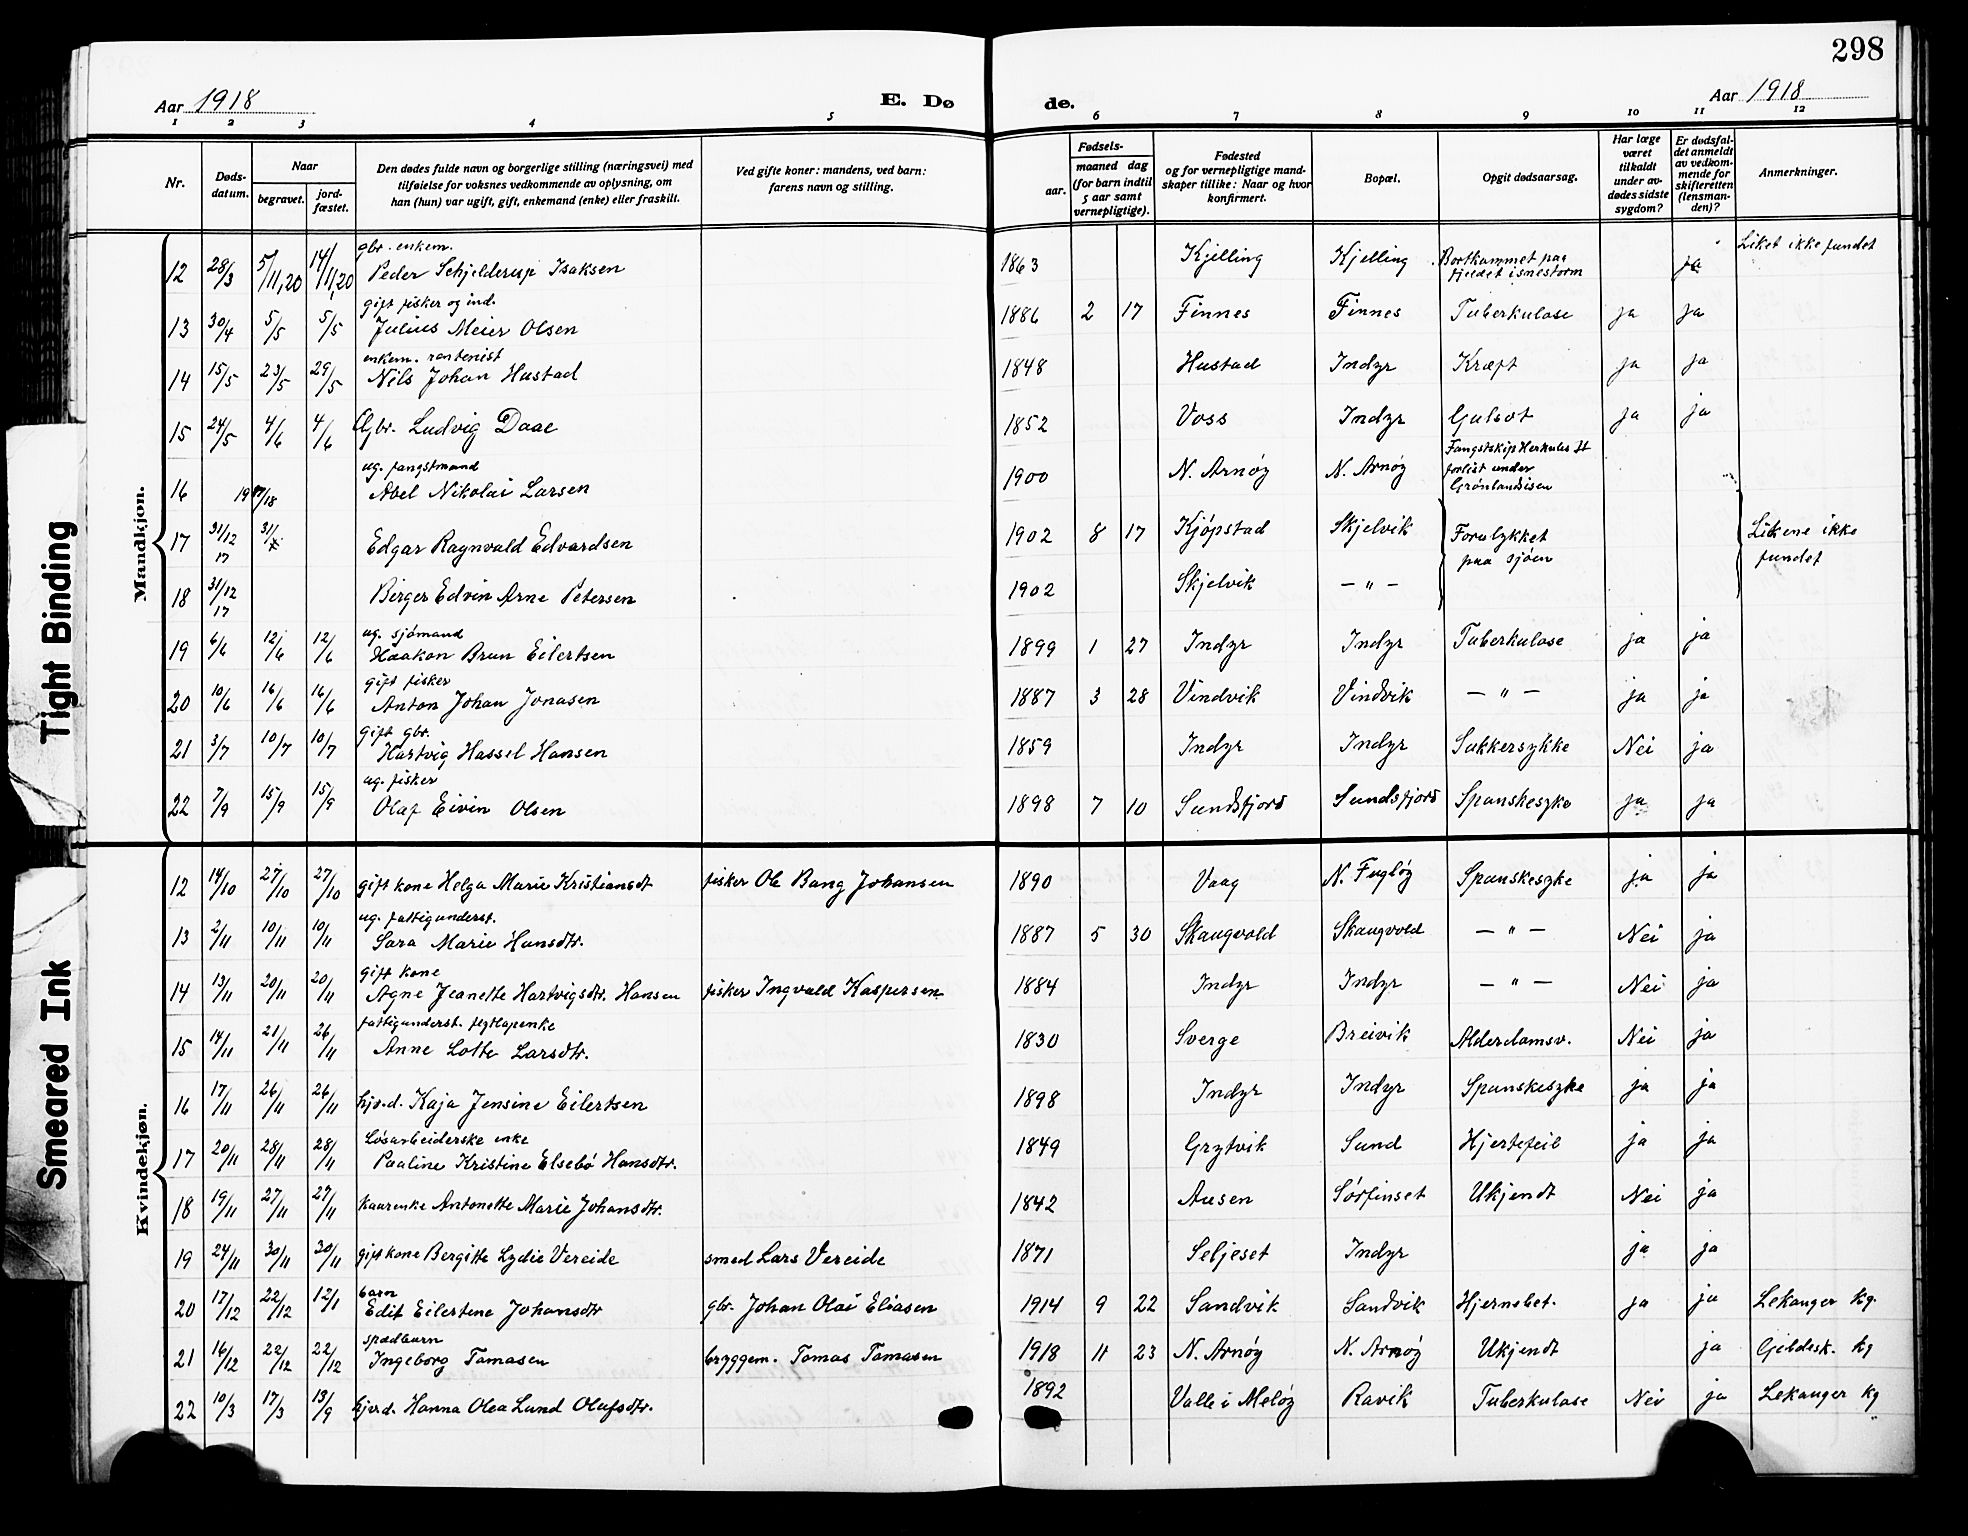 298
Aar 1918 E. Dø de. Aar 1918
1 2 3 4 5 6 7 8 9 10 11 12
Nr.
Døds-datum.
Naar
begravet.
jord-fæstet.
Den dødes fulde navn og borgerlige stilling (næringsvei) med
tilføielse for voksnes vedkommende av oplysning, om
han (hun) var ugift, gift, enkemand (enke) eller fraskilt.
Ved gifte koner: mandens, ved barn:
farens navn og stilling.
Fødsels-
aar.
maaned dag
(for barn indtil
5 aar samt
vernepligtige).
Fødested
og for vernepligtige mand-
skaper tillike: Naar og hvor
konfirmert.
Bopæl.
Opgit dødsaarsag.
Har læge
været
tilkaldt
under av-
dødes sidste
sygdom?
Er dødsfal-
det anmeldt
av vedkom-
mende for
skifteretten
(lensman-
den)?
Anmerkninger.
Mandkjøn.
12 28/3 5/11,20 14/11,20 gbr. enkem. Peder Schjelderup Isaksen 1863 Kjelling Kjelling Bortkommet paa fjeldet i snestorm ja Liket ikke fundet
13 30/4 5/5 5/5 gift fisker og ind. Julius Meier Olsen 1886 2 17 Finnes Finnes Tuberkulose ja ja
14 15/5 23/5 29/5 enkem. rentenist Nils Johan Hustad 1848 Hustad Indyr Kræft ja ja
15 24/5 4/6 4/6 Gbr. Ludvig Daae 1852 Voss Indyr Gulsot ja ja
16 1917/18 ug. fangstmand Abel Nikolai Larsen 1900 N. Arnøy N. Arnøy Fangstskip Herkules II forlist under Grønlandsisen
17 31/12 17 31/ Edgar Ragnvald Edvardsen 1902 8 17 Kjøpstad Skjelvik Forulykket paa sjøen Likene ikke fundet
18 31/12 17 Birger Edvin Arne Petersen 1902 Skjelvik — " —
19 6/6 12/6 12/6 ug. sjømand Haakon Brun Eilertsen 1899 1 27 Indyr Indyr Tuberkulose ja ja
20 10/6 16/6 16/6 gift fisker Anton Johan Jonasen 1887 3 28 Vindvik Vindvik — " — ja ja
21 3/7 10/7 10/7 gift gbr. Hartvig Hassel Hansen 1859 Indyr Indyr Sukkersykke Nei ja
22 7/9 15/9 15/9 ug. fisker Olaf Eivin Olsen 1898 7 10 Sundsfjord Sundsfjord Spanskesyke ja ja
Kvindekjøn.
12 14/10 27/10 27/10 gift kone Helga Marie Kristiansdt fisker Ole Bang Johansen 1890 Vaag N. Fugløy Spanskesyke ja ja
13 2/11 10/11 10/11 ug. fattigunderst. Sara Marie Hansdtr. 1887 5 30 Skaugvold Skaugvold — " — Nei ja
14 13/11 20/11 20/11 gift kone Agne Jeanette Hartvigsdtr. Hansen fisker Ingvald Kaspersen 1884 Indyr Indyr — " — Nei ja
15 14/11 21/11 26/11 fattigunderst. flytlapenke Anne Lotte Larsdtr. 1830 Sverge Breivik Alderdomsv. Nei ja
16 17/11 26/11 26/11 hjv.d. Kaja Jensine Eilertsen 1898 Indyr Indyr Spanskesyke ja ja
17 20/11 28/11 28/11 Løsarbeiderske enke Pauline Kristine Elsebø Hansdtr. 1849 Grytvik Sund Hjertefeil ja ja
18 19/11 27/11 27/11 kaarenke Antonette Marie Johansdtr. 1842 Ausen Sørfinset Ukjendt Nei ja
19 24/11 30/11 30/11 gift kone Bergitte Lydie Vereide smed Lars Vereide 1871 Seljeset Indyr ja ja
20 17/12 22/12 12/1 barn Edit Eilertene Johansdtr gbr. Johan Olai Eliasen 1914 9 22 Sandvik Sandvik Hjernebet. ja ja Lekanger kg.
21 16/12 22/12 22/12 spædbarn Ingeborg Tomasen bryggem. Tomas Tomasen 1918 11 23 N. Arnøy N. Arnøy Ukjendt ja Gildesk. kg
22 10/3 17/3 13/9 hjv.d. Hanna Olea Lund Olufsdtr. 1892 Valle i Meløy Ravik Tuberkulose Nei ja Lekanger kg
Tight Binding
Smeared Ink